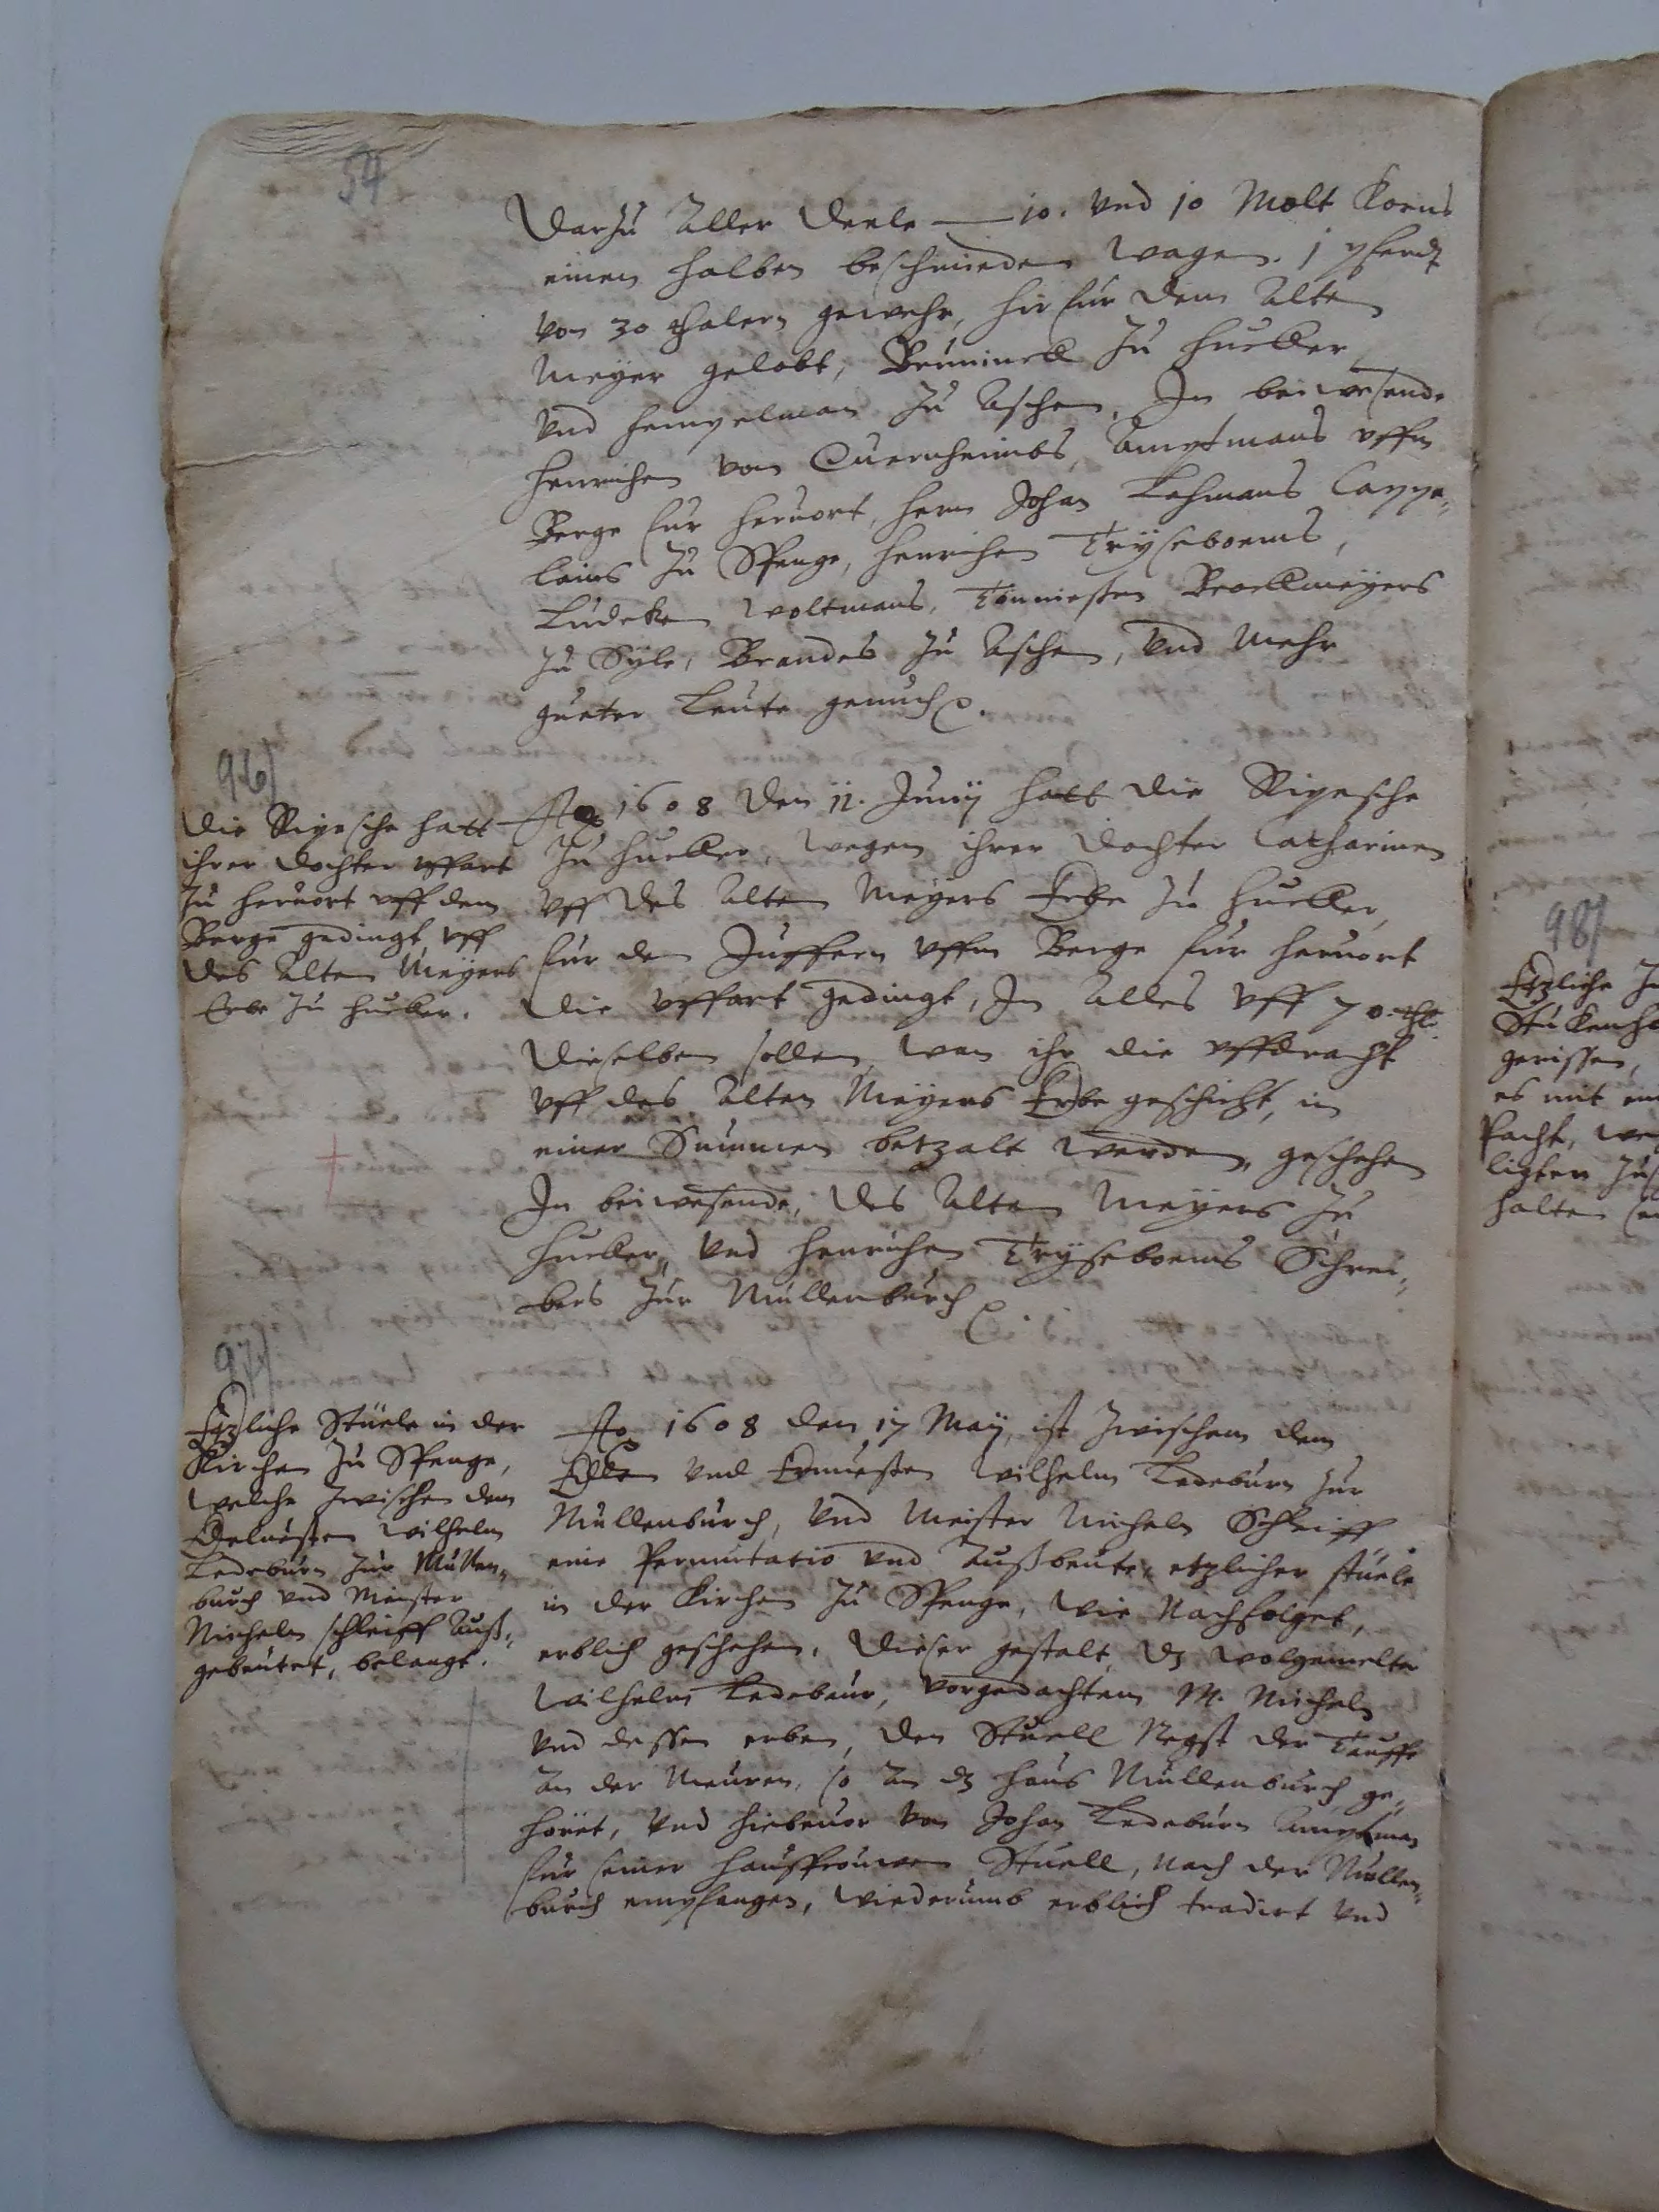 54
Darzu Aller Deele — 10. vnd 10 Molt Korns
einen halben beschmieden wagen. 1 pferdt
von 30 thalern gewehr, hir fur dem Alten
Meyer gelobt, Brüninck zu Hucker
vnd Hempelman zu Aschen, In beiwesende
Henrichen von Quernheimbs, Amptmans vffm
Berge fur Heruort, Hern Johan Lehmans Cappe„
lains zu Spenge, Henrichen Tryseboems,
Ludeken Woltmans, Tönniesten Broekmeyers
zu Syle, Brandes zu Aschen, vnd Mehr
gueter Leute genuch.
96/
Die Ripesche hatt
ihrer dochter vffart
zu Heruort vff dem
Berge gedingt, vff
des Alten Meyers
Erbe zu Hucker.
Ao 1608 den 11. Junij hatt die Ripesche
zu Hucker, wegen ihrer dochter Catharinen
vff des Alten Meyers Erbe zu Hucker,
fur den Juffern vffm Berge fur Heruort
die vffart gedingt, In Alles vff 70. thlr.
Dieselben sollen, wan ihr die vffdracht
vff des Alten Meyers Erbe geschicht, in
einer Summen betzalt werden, geschehen
In beiwesende, des Alten Meyers zu
Hucker, vnd Henrichen Tryseboems Schrei„
bers zur Mullenburch
97/
Etzliche Stuele in der
Kirchen zu Spenge,
welche zwischen dem
Edeluesten Wilhelm
Ledeburn zur Mullen„
burch vnd Meister
Micheln schleiff Auß„
gebeutet, belangt.
Ao 1608 den 17 Maij, ist zwischen dem
Edlen vnd Ernuesten Wilhelm Ledeburn zur
Mullenburch, vnd Meister Micheln Schleiff,
eine Permutatio vnd Außbeute, etzlicher stuele
in der Kirchen zu Spenge, wie Nachfolget,
erblich geschehen, dieser gestalt, dz wolgemelter
Wilhelm Ledebaur, vorgedachtem M. Micheln
vnd dessen erben, den Stuell Negst der Tauffe
An der Meuren, so An dz Haus Mullenburch ge„
höret, vnd hiebeuor von Johan Ledeburn Amptman
fur seiner Haußfrouwen Stuell, nach der Mullen„
burch empfangen, wiederumb erblich tradirt vnd
98/
Etzliche
Stukenho
gerissen,
es mit ein
Pacht, we
ligten zu
halten